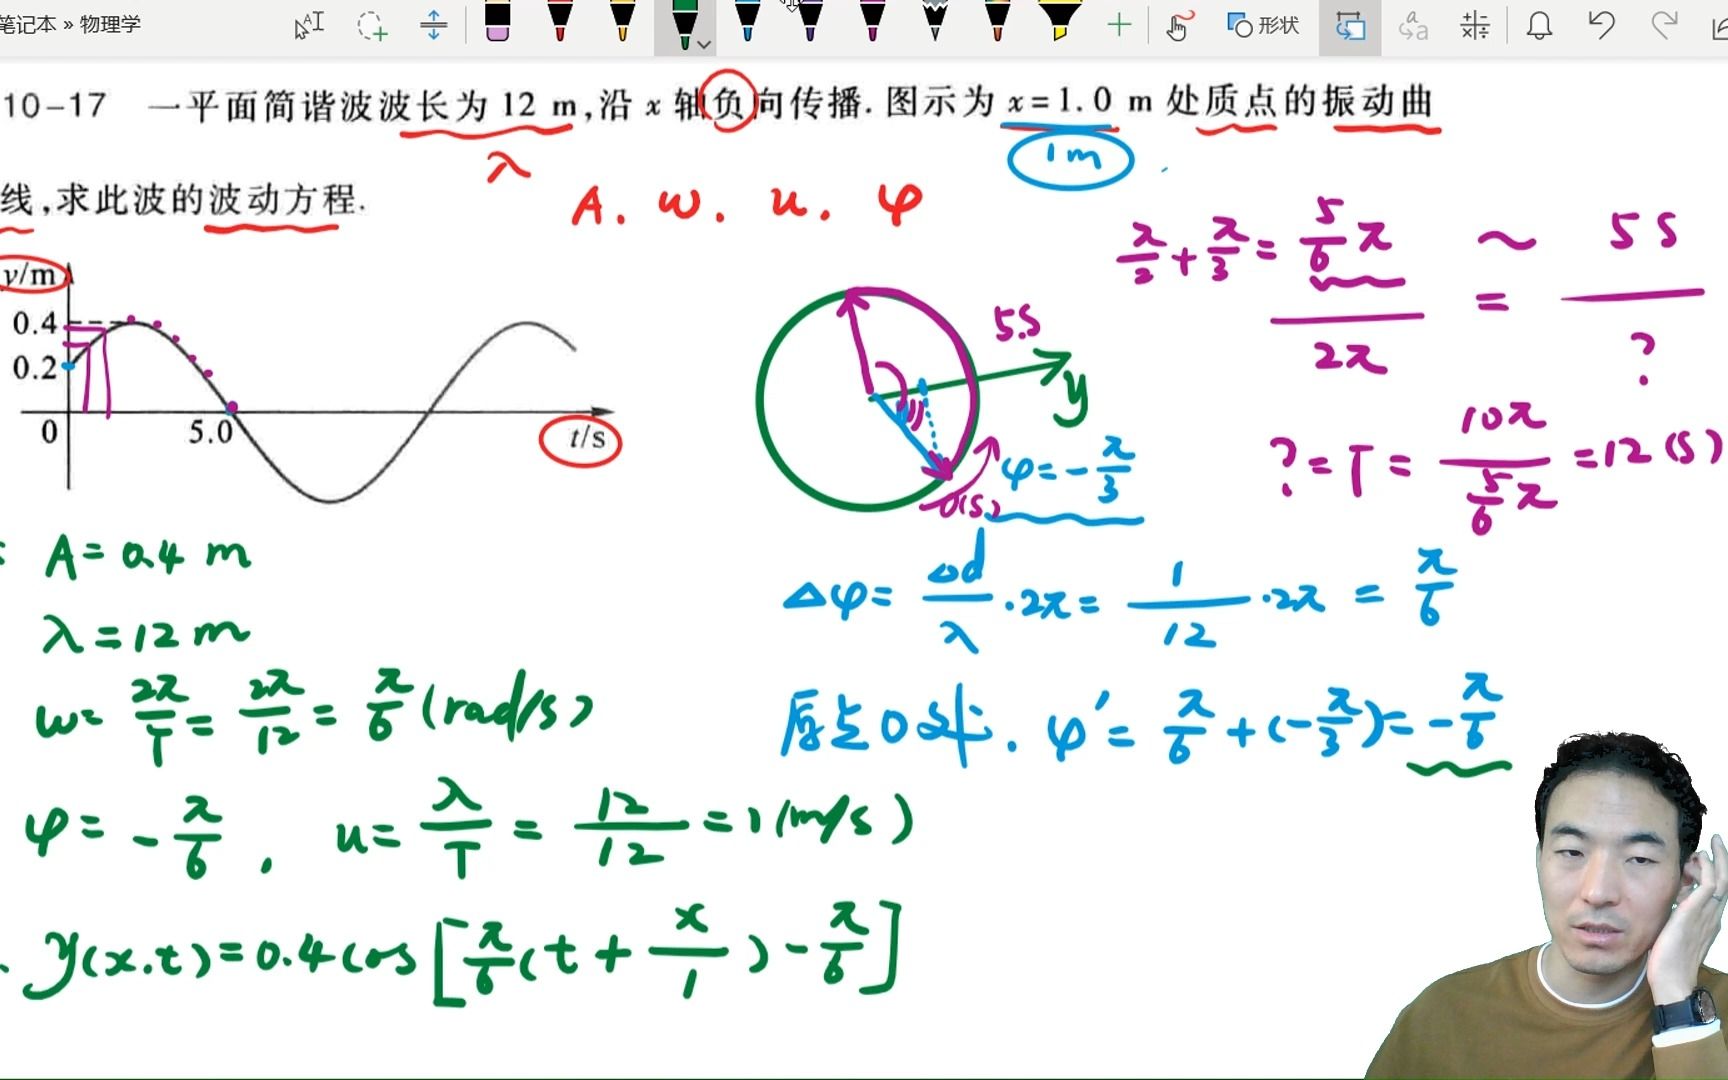 笔记本 » 物理学
形状
10-17 一平面简谐波波长为 12 m,沿 x 轴负向传播. 图示为 x=1.0 m 处质点的振动曲
λ
1m
线,求此波的波动方程.
A. w. u. φ
π/2 + π/3 = 5/6 π ~ 5S
2π = ?
y/m
0.4
0.2
0
5.0
t/s
5S
y
0(S)
φ=-π/3
?=T= 10π / 5/6 π =12(S)
: A=0.4 m
λ=12 m
w= 2π/T = 2π/12 = π/6 (rad/s)
φ= -π/6 , u= λ/T = 12/12 =1(m/s)
y(x.t)=0.4cos[π/6(t+x/1)-π/6]
Δφ= Δd/λ ·2π= 1/12 ·2π = π/6
原点0处. φ'= π/6 +(-π/3)= -π/6